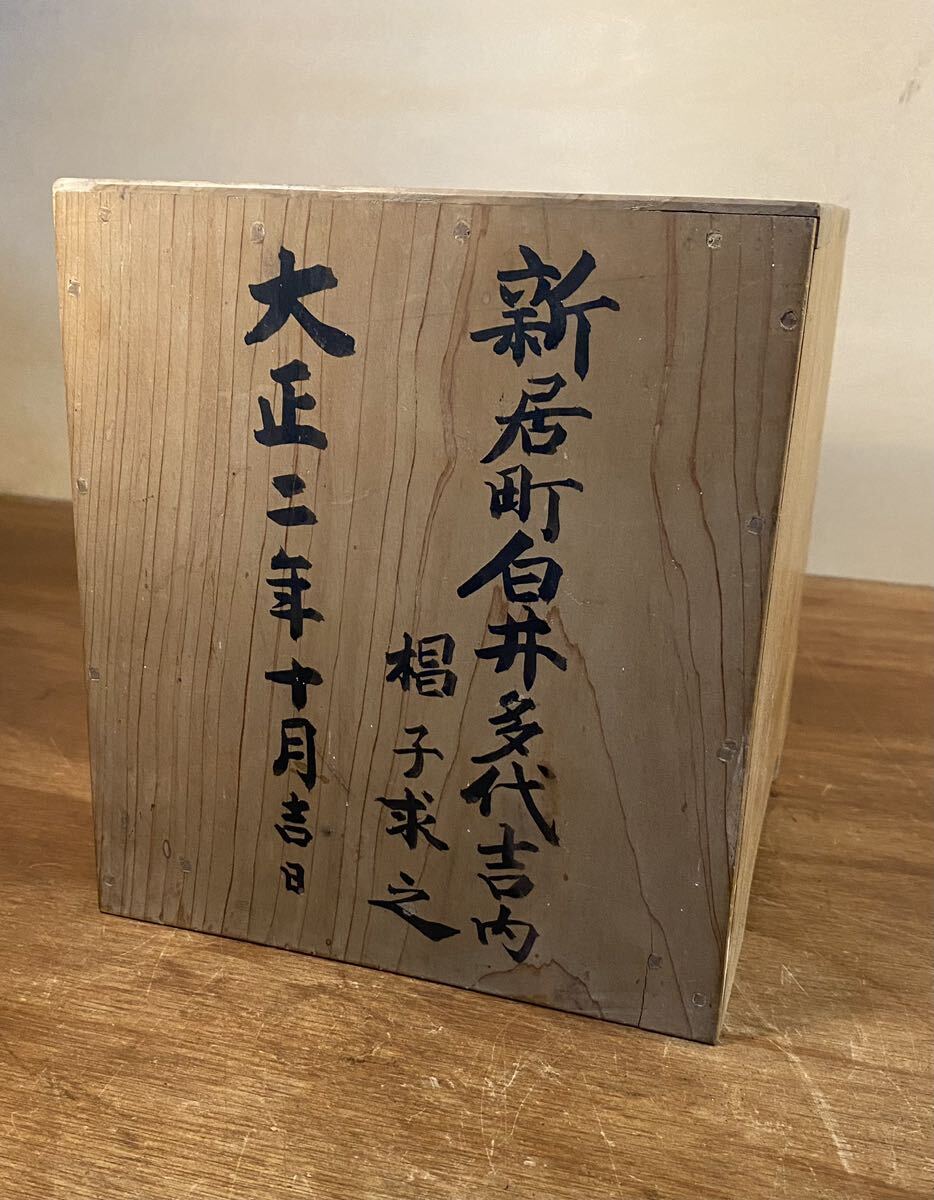 新居町白井多代吉内
椙子求之
大正二年十月吉日